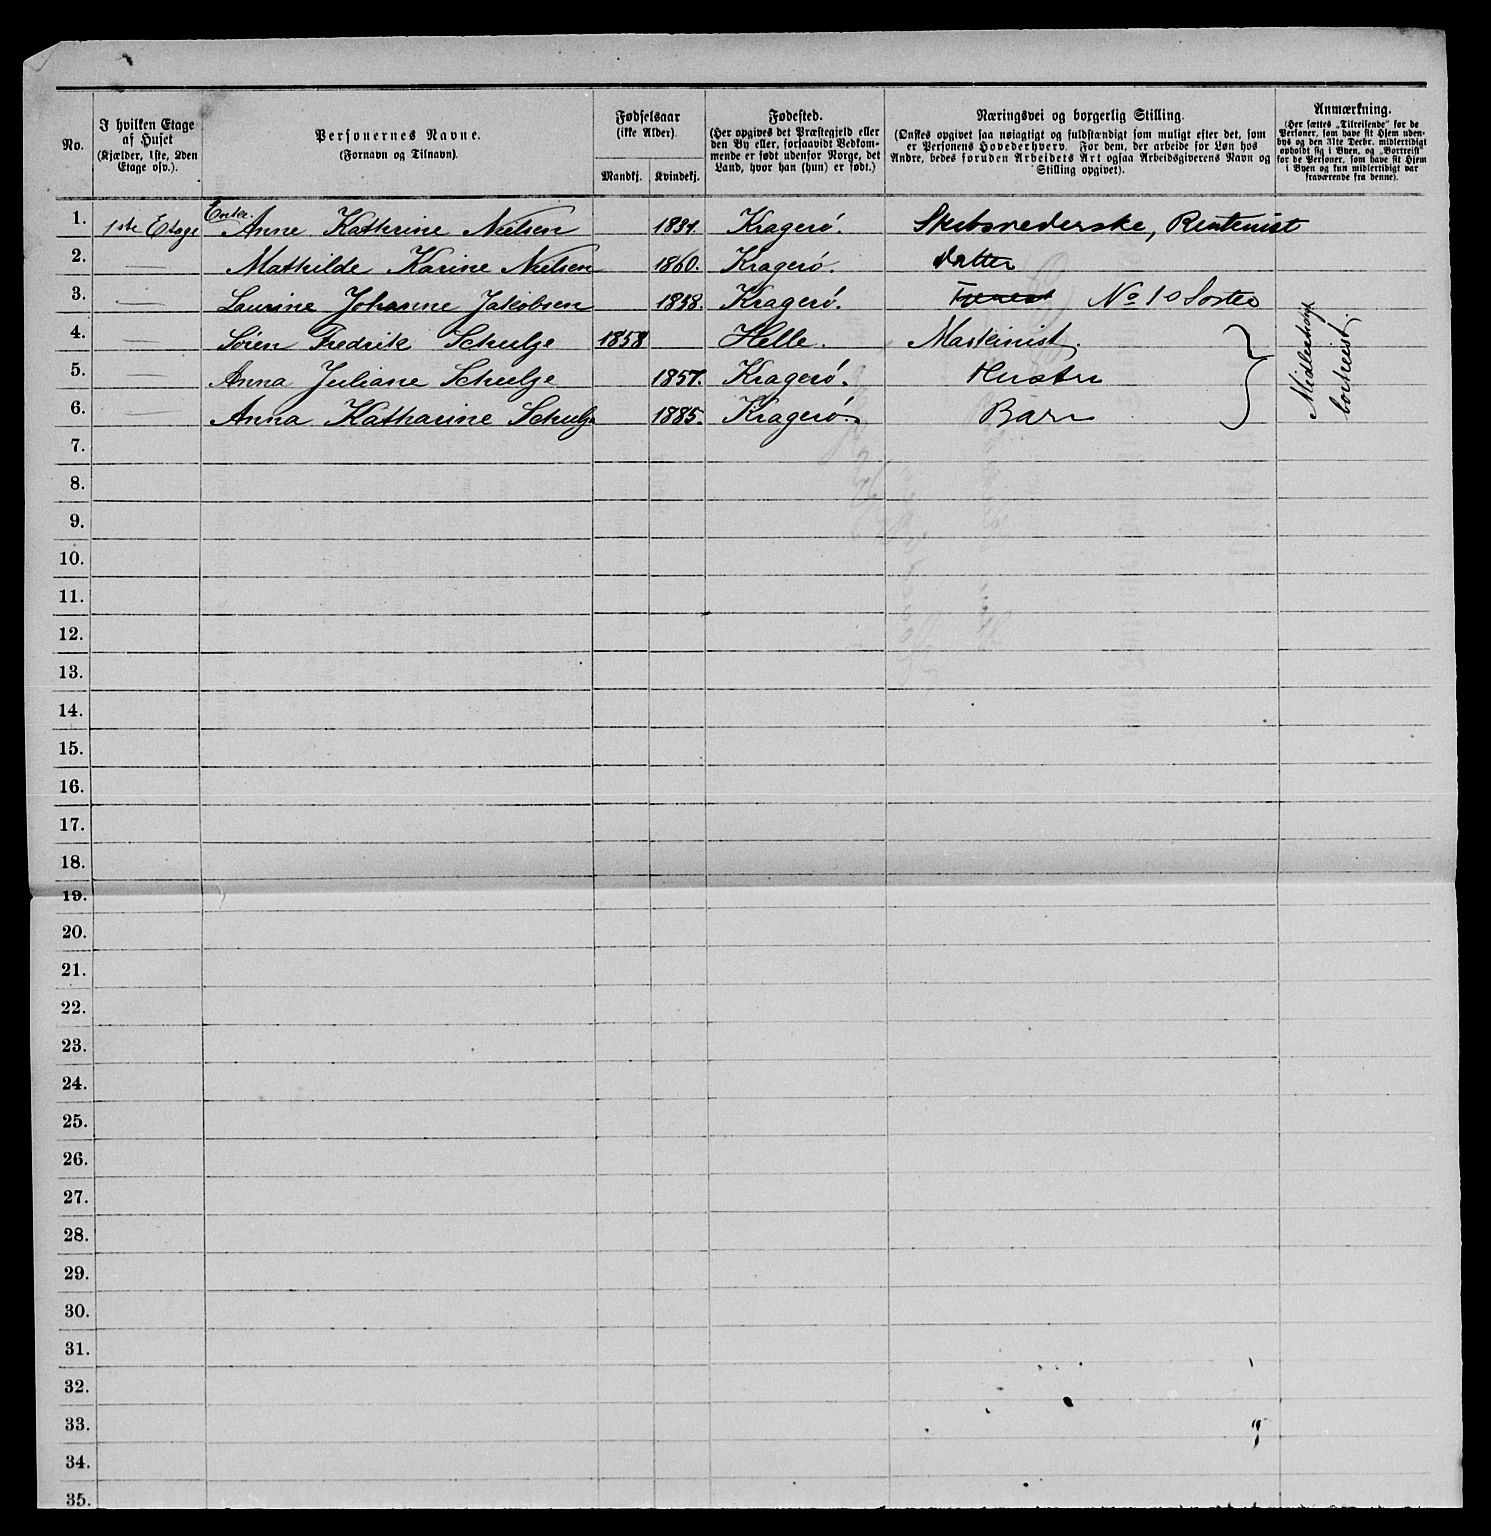 No.
I hvilken Etage
af Huset
(Kjælder, 1ste, 2den
Etage osv.).
Personernes Navne.
(Fornavn og Tilnavn).
Fødselsaar
(ikke Alder).
Mandkj. Kvindekj.
Fødested.
(Her opgives det Præstegjeld eller
den By eller, forsaavidt Vedkom-
mende er født udenfor Norge, det
Land, hvor han (hun) er født.)
Næringsvei og borgerlig Stilling.
(Ønskes opgivet saa nøiagtigt og fuldstændigt som muligt efter det, som
er Personens Hovederhverv. For dem, der arbeide for Løn hos
Andre, bedes foruden Arbeidets Art ogsaa Arbeidsgiverens Navn og
Stilling opgivet).
Anmærkning.
(Her sættes „Tilreisende“ for de
Personer, som have sit Hjem uden-
bys og den 31te Decbr. midlertidigt
opholdt sig i Byen, og „Bortreist“
for de Personer, som have sit Hjem
i Byen og kun midlertidigt var
fraværende fra denne).
1. 1ste Etage Enke. Anne Kathrine Nielsen 1831. Kragerö. Skibsrederske, Rentenist
2. — Mathilde Karine Nielsen 1860. Kragerö. datter
3. — Laurine Johanne Jakobsen 1838. Kragerö. No 1s Söster
4. — Sören Fredrik Schulze 1858 Helle. Maskinist.
5. — Anna Juliane Schulze 1857. Kragerö. Hustru
6. — Anna Katharine Schulze 1885. Kragerö. Barn
Midlertidigt
bortreist.
7.
8.
9.
10.
11.
12.
13.
14.
15.
16.
17.
18.
19.
20.
21.
22.
23.
24.
25.
26.
27.
28.
29.
30.
31.
32.
33.
34.
35.